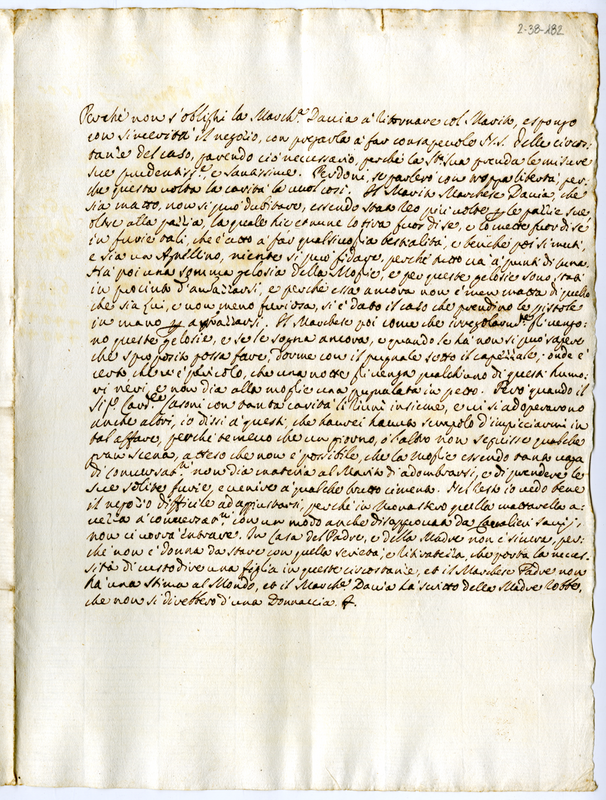 2-38-182
Perche non s'oblighi la March.ª Davia à ritornare col Marito, espongo
con sincerità il negozio, con pregarla à far consapevole N.S. delle circos
tanze del caso, parendo ciò necessario, perche la S.tà Sua prenda le misure
sue prudentiss.e, e Santissime. Perdoni, se parlerò con troppa libertà, per
che questa volta la carità le vuol così. Il Marito Marchese Davia, che
sia matto, non si può dubitare, essendo stato leg. più volte per le pazzie sue,
oltre alla pazzia, la quale hic et nunc lo tira fuor di se, e lo mette fuor di se
in furie tali, che è atto à far qualsivoglia bestialità, e benche poi si muti,
e sia un Agnellino, niente si può fidare, perche tutto và à punti di luna.
Hà poi una somma gelosia della Moglie, e per queste gelosie sono stati
in procinto d'amazzarsi, e perche essa ancora non è men matta di quello
che sia lui, e non meno furiosa, si è dato il caso che prendino le pistole
in mano per ammazzarsi. Il Marchese poi come che irregolarm.te gli vengo
no queste gelosie, e se le sogna ancora, e quando le hà non si può sapere
che sproposito possa fare, dorme con il pugnale sotto il capezzale; onde è
certo che vi è pericolo, che una notte gli venga qualchuno di questi humo
ri neri, e non dia alla moglie una pugnalata in petto. Però quando il
Sig.r Card.le Casoni con tanta carità li riunì insieme, e vi si adoperarono
anche altri, io dissi à questi, che haurei hauuto scrupolo d'impicciarmi in
tal affare, perche temeuo che un giorno, ò l'altro non seguisse qualche
gran scena, atteso che non è possibile, che la Moglie essendo tanto vaga
di conversat.ni non dia materia al Marito di adombrarsi, e di prendere le
sue solite furie, e venire à qualche brutto cimento. Nel resto io vedo bene
il negozio difficile ad aggiustarsi, perche in Monastero quella mattarella a-
vezza à conversar con un modo anche disapprouato da Cavalieri savij,
non ci vorrà entrare. In Casa del Padre, e della Madre non è sicura, per-
che non è donna da stare con quella serietà, e ritiratezza, che porta la neces-
sità di custodire una figlia in queste circostanze, et il Marchese Padre non
hà una stima al Mondo, et il March.e Davia hà scritto della Madre cose,
che non si direbbero d'una Donnaccia.